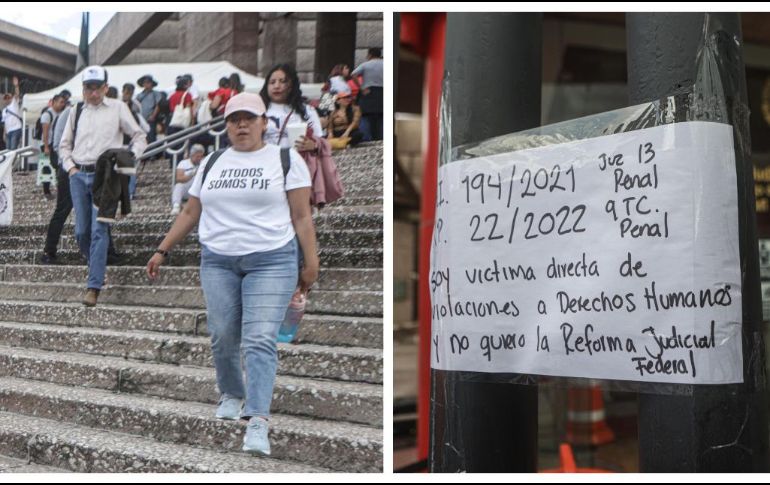 #TODOS
SOMOS PJF
194/2021 Juz 13
Penal
22/2022 9 TC.
Penal
Soy víctima directa de
violaciones a Derechos Humanos
y no quiero la Reforma Judicial
Federal